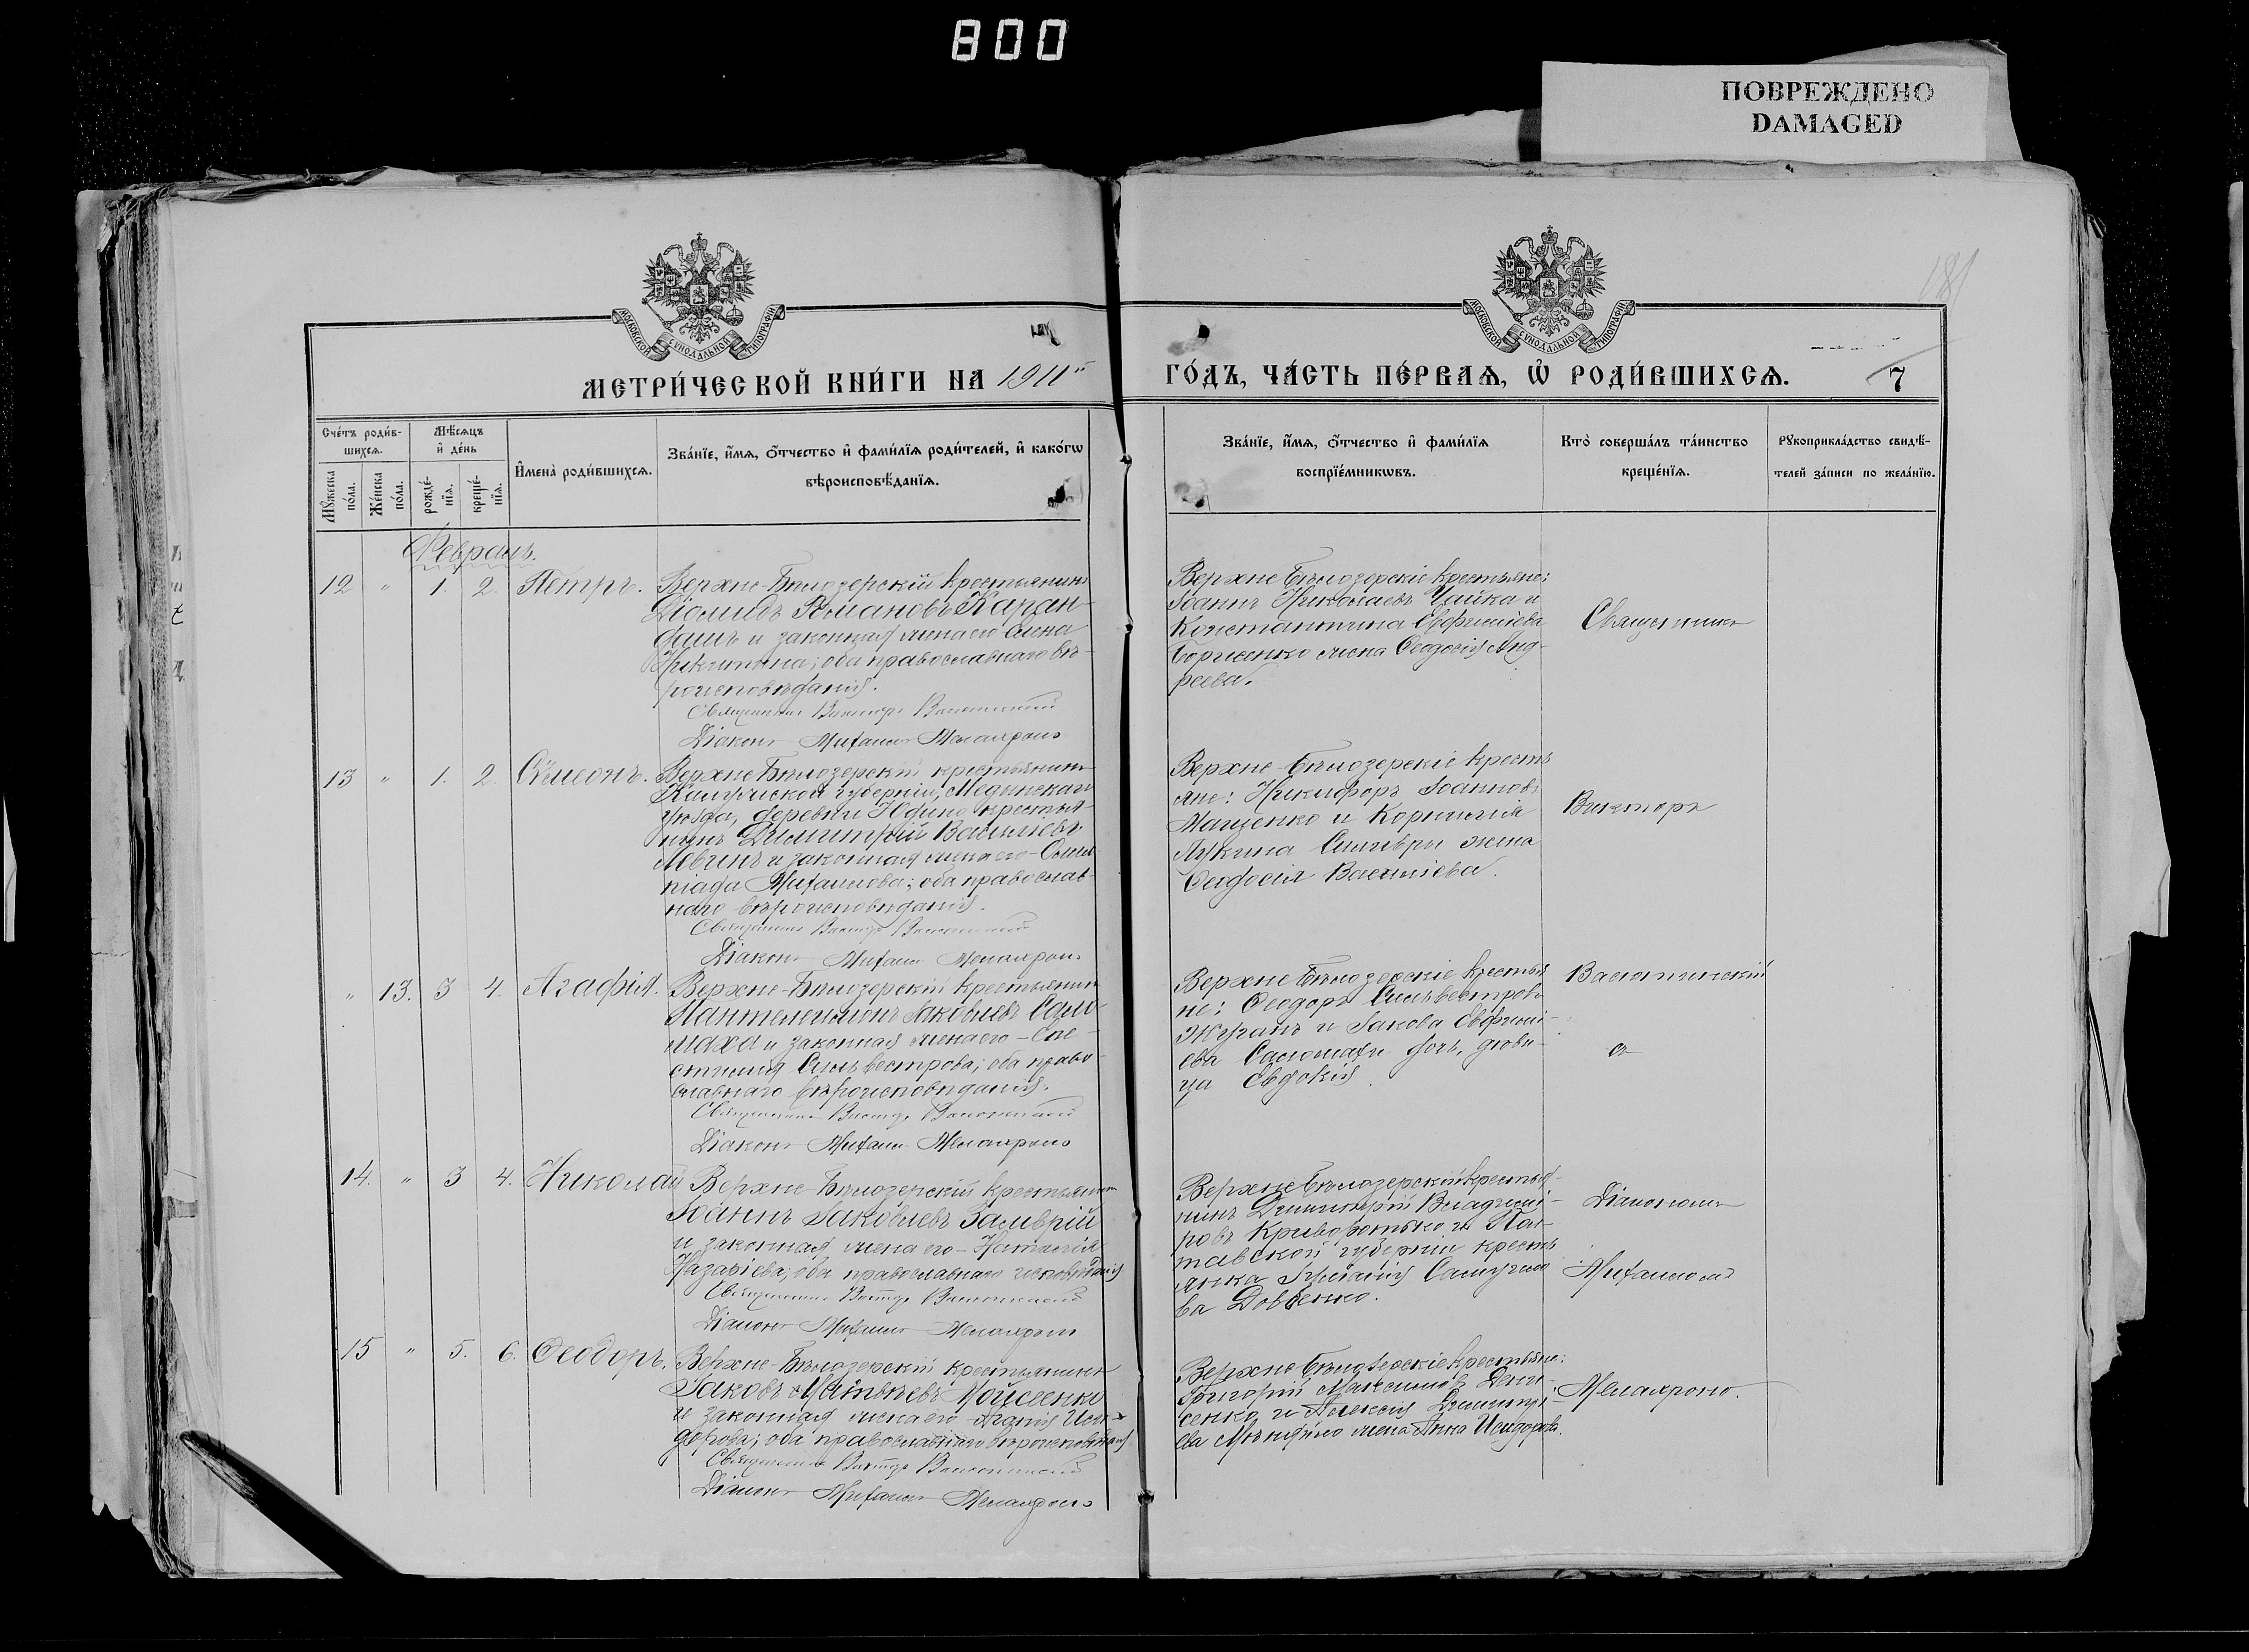 800
ПОВРЕЖДЕНО
DAMAGED
181
МОСКОВСКОЙ СѴНОДАЛЬНОЙ ТИПОГРАФІИ
МОСКОВСКОЙ СѴНОДАЛЬНОЙ ТИПОГРАФІИ
МЕТРИ́ЧЕСКОЙ КНИ́ГИ НА 1911й
ГО́ДЪ, ЧА́СТЬ ПЕ́РВАѦ, Ѡ҆ РОДИ́ВШИХСѦ. 7
Сче́тъ роди́в-
шихсѧ.
Мꙋ́жеска по́ла.
Же́нска по́ла.
Мѣ́сѧцъ
и҆ де́нь
рожде́-
нїѧ.
креще́-
нїѧ.
И҆мена̀ роди́вшихсѧ.
Зва́нїе, и҆́мѧ, ѻ҆́тчество и҆ фами́лїѧ роди́телей, и҆ како́гѡ
вѣроисповѣ́данїѧ.
Зва́нїе, и҆́мѧ, ѻ҆́тчество и҆ фами́лїѧ
воспрїе́мникѡвъ.
Кто̀ соверша́лъ та́инство
креще́нїѧ.
Рꙋкоприкла́дство свидѣ́-
телей за́писи по жела́нїю.
Февраль.
12 " 1. 2. Петръ.
Верхне-Бѣлозерскій крестьянинъ
Діомидъ Романовъ Каран-
дашъ и законная жена его Елена
Никитина; оба православнаго вѣ-
роисповѣданія.
Священникъ Викторъ
Діаконъ Михаилъ
Верхне Бѣлозерскіе крестьяне:
Іоаннъ Николаевъ Чайка и
Константина Евфиміева
Борисенко жена Ѳеодосія Анд-
реева.
Священникъ
13 " 1. 2. Сѵмеонъ.
Верхне Бѣлозерскій крестьянинъ
Калужской губерніи, Медынскаго
уѣзда, деревни Юдино крестья-
нинъ Димитрій Василіевъ
и законная жена его - Олим-
піада Михаилова; оба православ-
наго вѣроисповѣданія.
Священникъ Викторъ
Діаконъ Михаилъ
Верхне-Бѣлозерскіе кресть
яне: Никифоръ Іоанновъ
Мащенко и Корнилія
Лукина жена
Ѳеодосія Василіева.
Викторъ
" 13. 3 4. Агафія.
Верхне-Бѣлозерскій крестьянинъ
Пантелеимонъ Іаковлевъ Сало-
маха и законная жена его - Епи-
стимія Сильвестрова; оба право-
славнаго вѣроисповѣданія.
Священникъ Викторъ
Діаконъ Михаилъ
Верхне Бѣлозерскіе крестья
не: Ѳеодоръ Сильвестровъ
Журанъ и Іакова Евфимі-
ева Саломахи дочь, дѣви-
ца Евдокія.
съ
14. " 3 4. Николай
Верхне-Бѣлозерскій крестьянинъ
Іоаннъ Іаковлевъ Замврій
и законная жена его - Наталія
Назаріева; оба православнаго исповѣданія
Священникъ Викторъ
Діаконъ Михаилъ
Верхне Бѣлозерскій крестья-
нинъ Димитрій Владимі-
ровъ Криворотько и Пол-
тавской губерніи кресть
янка Самуило
ва Довбенко.
Діакономъ
Михаиломъ
15 " 5. 6. Ѳеодоръ.
Верхне-Бѣлозерскій крестьянинъ
Іаковъ Матвѣевъ Мойсеенко
и законная жена его Исі-
дорова; оба православнаго вѣроисповѣданія
Священникъ Викторъ
Діаконъ Михаилъ
Верхне Бѣлозерскіе крестьяне:
Григорій Максимовъ Дени-
сенко и Алексія Димитрі-
ева жена Анна Исидорова.